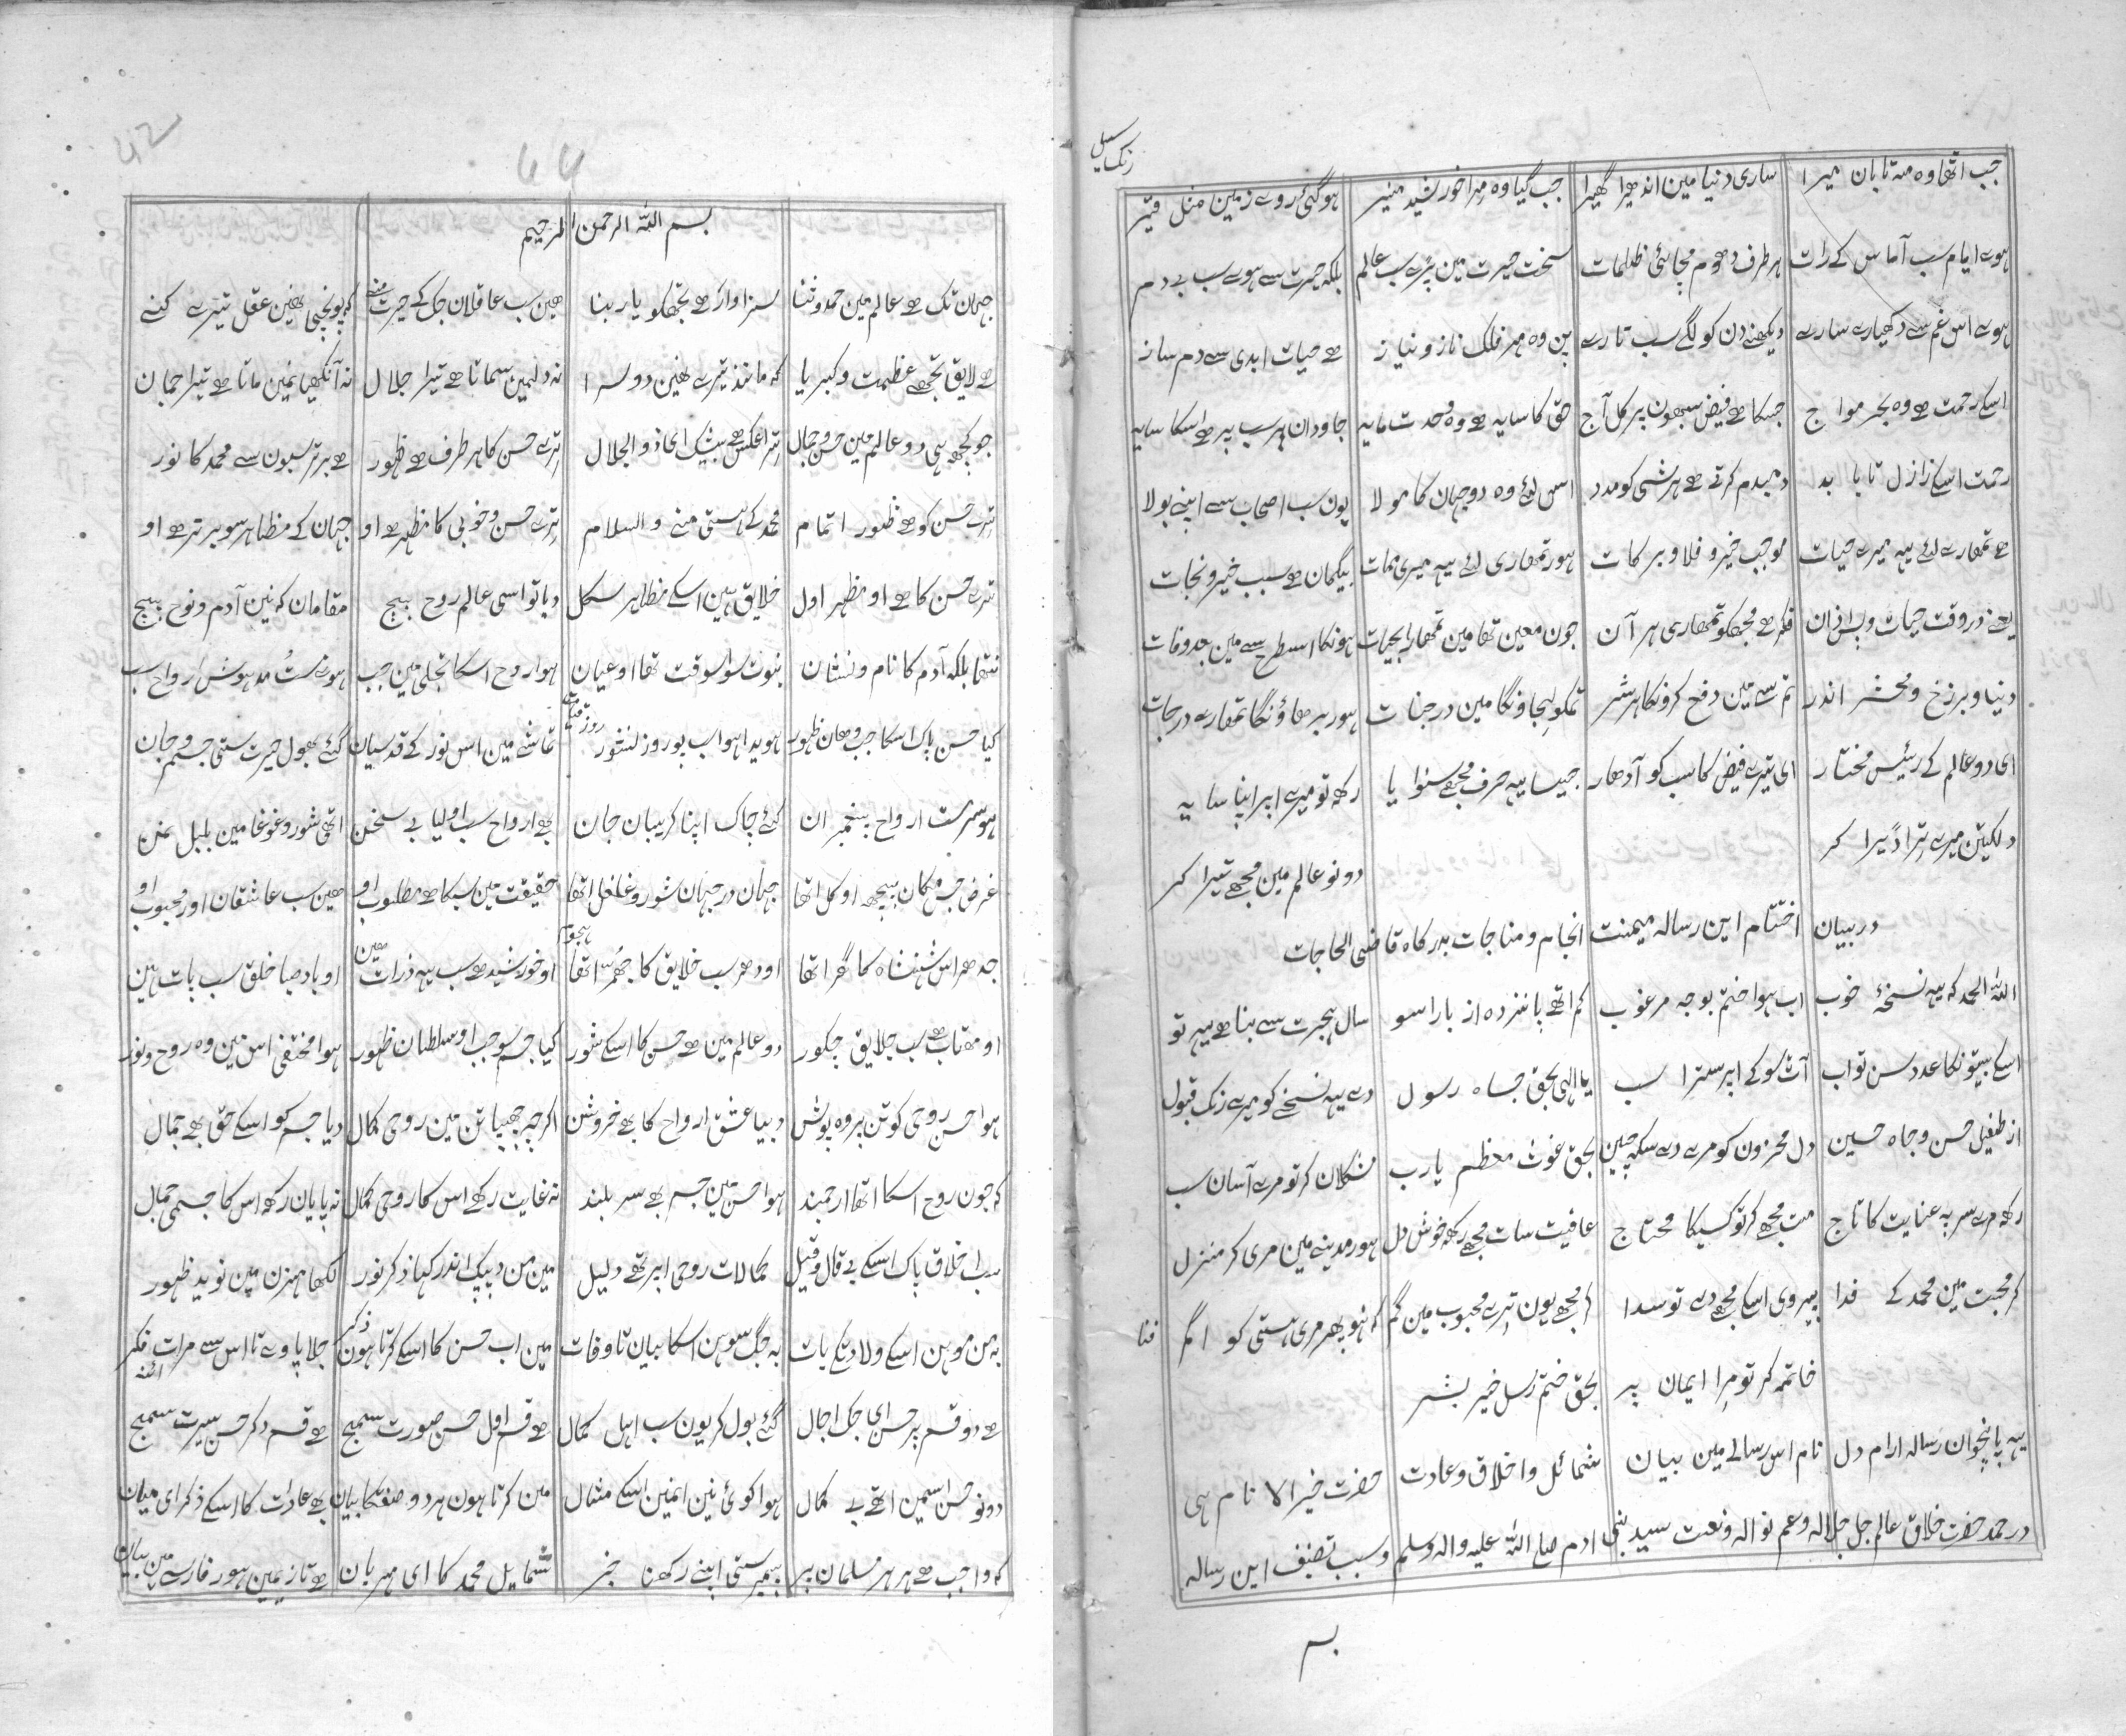 جب اتھا وہ مہ تابان میرا ساری دنیا مین اندھیرا گھیرا جب گیا وہ مرا خورشید منیر ہو گئی روے زمین مثل قیر
ہوے ایام سب آماس کے رات ہر طرف دھوم مچائی ظلمات سخت حیرت مین پڑے سب عالم بلکہ حیرت سے ہوے سب بے دم
ہوے اس غم سے دکھیارے سارے دیکھنے دن کو لگے سب تارے پن وہ مہر فلک ناز و نیاز ہے حیات ابدی سے دم ساز
اسکے رحمت ہے وہ بحر مواج جسکا ہے فیض سبھون پر کل آج حق کا سایہ ہے وہ وحدت مایہ جاودان ہر سب پر ہے اسکا سایہ
رحمت اسکے از ازل تا با بد دمبدم کرتے ہے ہر شی کو مدد اس لئے وہ دو جہان کا مولا یون سب اصحاب سے اپنے بولا
ہے تمھارے لئے یہہ میرے حیات موجب خیر و فلا و برکات ہور تمھاری لئے یہہ میری ممات بیگمان ہے سبب خیر و نجات
یعنے در وقت حیات فکر ہے مجھکو تمھاری ہر آن جون معین تھا مین تمھارا بحیات ہونگا اسطرح سے مین بعد وفات
دنیا و برزخ و محشر اندر تم سے مین دفع کرونگا ہر شر تمکو لیجاونگا مین در جنات ہور بڑھاؤنگا تمھارے درجات
ای دو عالم کے رئیس مختار ای تیرے فیض کا سب کو آدھار جیسا یہہ حرف مجھے سنوایا رکھ تو میرے اپر اپنا سایہ
دلکیتن میرے ترا ڈیرا کر دونو عالم مین مجھے تیرا کر
در بیان اختتام این رسالہ میمنت انجام و مناجات بدرگاہ قاضی الحاجات
اللہ الحمد کہ یہہ نسخۂ خوب اب ہوا ختم بوجہ مرغوب کم اتھے پانزدہ از بارا سو سال ہجرت سے بنا ہے یہہ تو
اسکے بیتونکا عدد سن تو اب آٹ سو کے اپر سترا سب یا الہی بحق جاہ رسول دے یہہ نسخے کو میرے رنک قبول
از طفیل حسن و جاہ حسین دل محزون کو مرے دے سکھ چین بحق غوث معظم یارب مشکلان کر تو مرے آسان سب
رکھ مرے سر پہ عنایت کا تاج مت مجھے کر تو کسیکا محتاج عافیت سات مجھے رکھ خوش دل ہور مدینے مین مری کر منزل
کر محبت مین محمد کے فدا پیروی اسکے مجھے دے تو سدا کر مجھے یون ترے محبوب مین گم کہ نہو پھر مری ہستی کو
فنا
خاتمہ کر تو مرا ایمان پر بحق ختم رسل خیر بشر
یہہ پانچوان رسالہ ارام دل نام اس رسالے مین بیان شمائل و اخلاق و عادت حضرت خیر الانام ہی
در حمد حضرت خلاق عالم جل جلالہ و عم نوالہ و نعت سید بنی ادم صلے اللہ علیہ والہ وسلم و سبب تصنیف این رسالہ
بسم
بسم اللہ الرحمن الرحیم
جہان تک ہے عالم مین حمد و ثنا سزاوار ہے تجھکو یا ربنا ھین سب عاقلان جک کے حیرت منے کہ پونچی نھین عقل تیرے کنے
ہے لایق تجھے عظمت و کبریا کہ مانند تیرے نھین دوسرا نہ دلمین سماتا ہے تیرا جلال نہ آنکھیا نمین ماتا ہے تیرا جمال
جو کچھ ہی دو عالم مین حسن و جمال ترا عکس ہے بیشک ای ذو الجلال ترے حسن کا ہر طرف ہے ظہور ہے برتر سبون سے محمد کا نور
ترے حسن کو ہے ظہور اتمام محمد کے ہستی منے والسلام ترے حسن و خوبی کا مظہر ہے او جہان کے مظاہر سو برتر ہے او
ترے حسن کا ہے او مظہر اول خلایق ہین اسکے مظاہر سکل دیا تو اسی عالم روح بیچ مقامان کہ نین آدم و نوح بیچ
نتھا بلکہ آدم کا نام و نشان نبوت سو اسوقت تھا او عیان ہوا روح اسکا تجلی مین جب ہوے مست مدہوش ارواح سب
کیا حسن پاک اسکا جب وھان ظہور ہویدا ہوا سب پو روز نشور تماشے مین اس نور کے قدسیان گئے بھول حیرت ستی جسم و جان
ہو سرمست ارواح پیغمبران کئے چاک اپنا گریبان جان بھے ارواح سب اولیا بے سخن اتھی شور و غوغا مین بلبل نمن
غرض جس مکان بیچ او گل اتھا جہان در جہان شور و غلغل اتھا حقیقت مین سبکا ہے مطلوب او ھین سب عاشقان اور محبوب او
جدھر اس شہنشاہ کا گھر اتھا اودھر سب خلایق کا جھرمٹ اتھا او خورشید ہے سب یہہ ذرات ھین او باد صبا خلق سب پات ہین
او مھتاب ہے سب خلایق چکور دو عالم مین ہے حسن کا اسکے شور کیا جسم سو جب او سلطان ظہور ہوا مختفی اس مین وہ روح و نور
ہوا حسن روحی کو تن پردہ پوش دبیا عشق ارواح کا بھے خروش اگرچہ چھپیا تن مین روحی کمال دیا جسم کو اسکے حق بھے جمال
کہ جون روح اسکا اتھا ارجمند ہوا حسن مین جسم بھے سر بلند نہ غایت رکھے اس کا روحی کمال نہ پایان رکھ اس کا جسمی جمال
سب اخلاق پاک اسکے بے قال و قیل کمالات روحی اپر تھے دلیل مین من دیپک اندر کیا ذکر نور لکھا من ہرن مین نوید ظہور
بہ من موہن اسکے ولادتکے بات بہ جگ سوہن اسکا بیان تا وفات مین اب حسن کا اسکے کرتا ہون ذکر جلا پاوے تا اس سے مرات فکر
ہے دو قسم پر حسن ای جک اجال گئے بول کر یون سب اہل کمال ہے قسم اول حسن صورت سمیج ہے قسم دگر حسن سیرت سمیج
دونو حسن اسمین اتھے بے کمال ہوا کوئی نین ایمین اسکے مثال مین کرتا ہون ہر دو صفتکا بیان بھے عادات کا اسکے ذکر ای میان
کہ واجب ہے ہر ہر مسلمان پر پیمبر ستی اپنے رکھنا خبر شمایل محمد کا ای مہربان ہے تازیمین ہور فارسے مین بیان